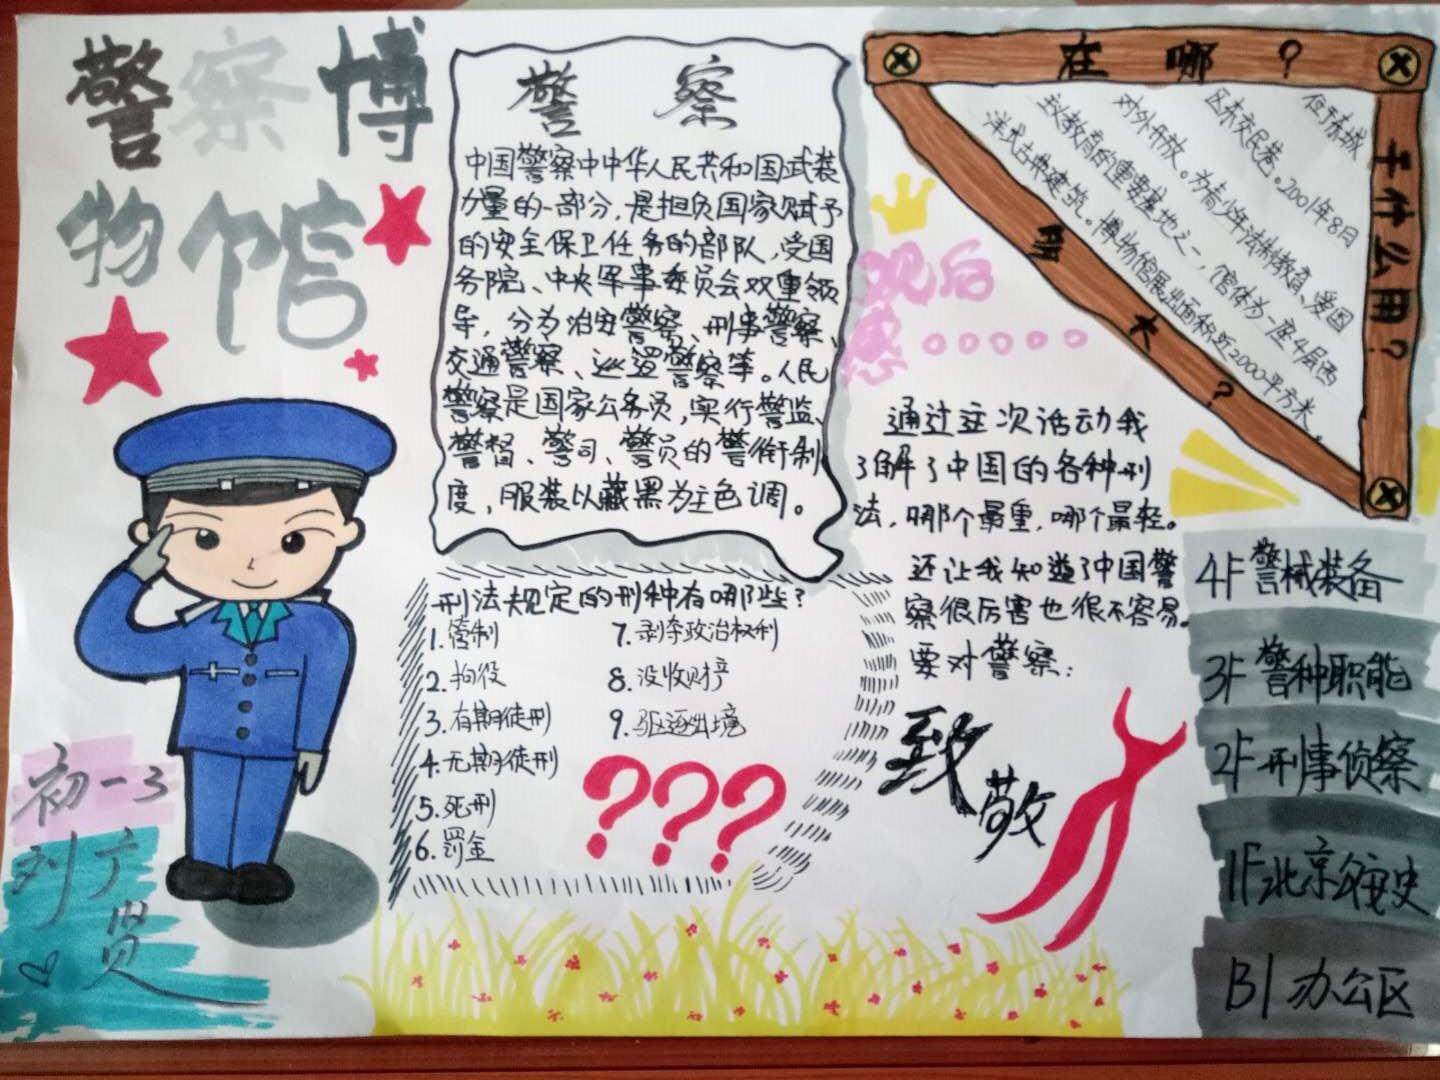 警察博
物馆
警 察
中国警察中中华人民共和国武装
力量的一部分,是担负国家赋予
的安全保卫任务的部队,受国
务院、中央军事委员会双重领
导,分为治安警察、刑事警察、
交通警察、巡逻警察等。人民
警察是国家公务员,实行警监、
警督、警司、警员的警衔制
度,服装以藏黑为主色调。
在哪?
干什么用?
多大?
位于东城
区东交民巷。2001年8月
对外开放。为青少年法制教育、爱国
主义教育的重要基地之一,馆体为一座4层西
洋式古典建筑。博物馆展出面积近2000平方米。
观后
感......
通过这次活动我
了解了中国的各种刑
法,哪个最重,哪个最轻。
还让我知道了中国警
察很厉害也很不容易。
要对警察:
致敬
刑法规定的刑种有哪些?
1.管制
2.拘役
3.有期徒刑
4.无期徒刑
5.死刑
6.罚金
7.剥夺政治权利
8.没收财产
9.驱逐出境
???
4F 警械装备
3F 警种职能
2F 刑事侦察
1F 北京公安史
B1 办公区
初一3
刘广
贤